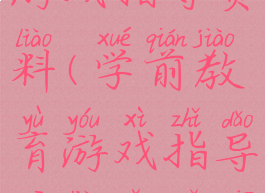 游戏指导资
liào xué qián jiào
料(学前教
yù yóu xì zhǐ dǎo
育游戏指导